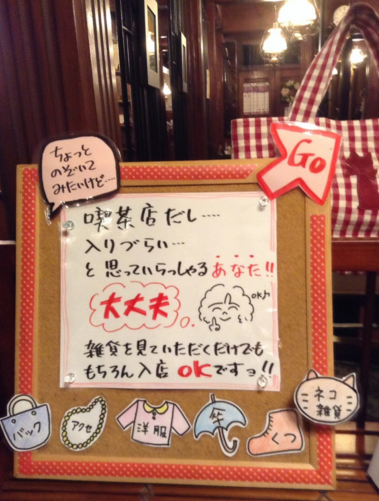 ちょっと
のぞいて
みたいけど…
Go
喫茶店だし‥‥
入りづらい…
と思っていらっしゃるあなた!!
大丈夫
OK♪
雑貨を見ていただくだけでも
もちろん入店OKですョ!!
バック
アクセ
洋服
傘
くつ
ネコ
雑貨